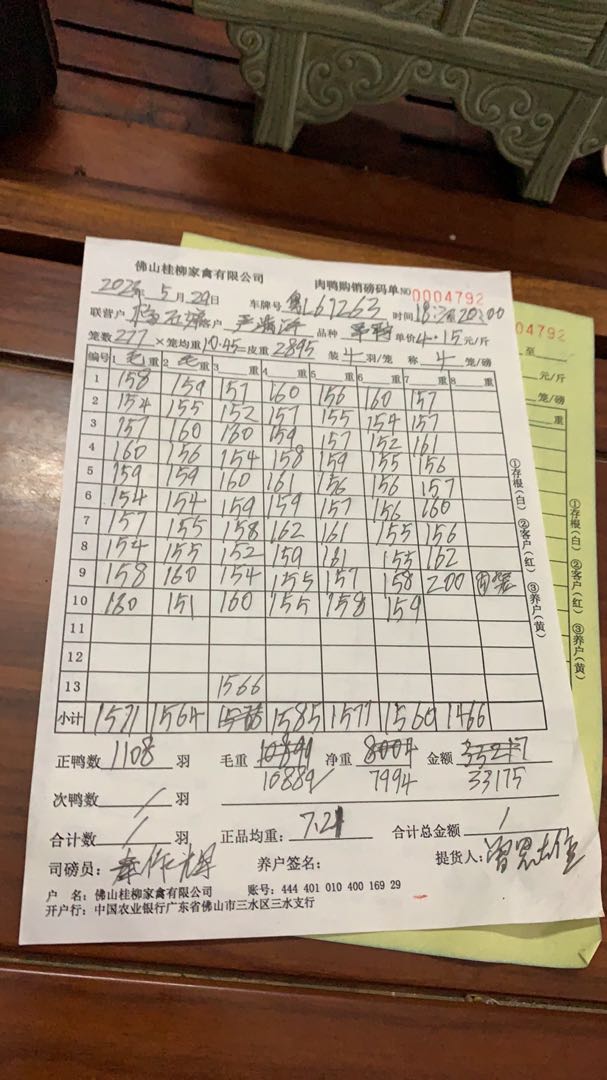 佛山桂柳家禽有限公司 肉鸭购销磅码单 NO 0004792
5月29日 车牌号 粤L67263 时间 20:00
联营户 客户 品种 单价 4.15 元/斤
笼数 277 × 笼均重 10.45 = 皮重 2895 装 4 羽/笼 称 4 笼/磅
编号 1 毛重 2 毛重 3 重 4 重 5 重 6 重 7 重 8 重
1 158 159 157 160 156 160 157
2 154 155 152 157 155 154 157
3 157 160 160 159 157 152 161
4 160 156 154 158 159 155 156
5 159 159 160 161 156 156 157
6 154 154 159 159 157 156 160
7 157 155 158 162 161 155 156
8 154 155 152 159 161 155 162
9 158 160 154 155 157 158 200
10 160 151 160 155 158 159
11
12
13 1566
小计 1571 1564 1585 1577 1560 1466
正鸭数 1108 羽 毛重 净重 金额
10889 7994 33175
次鸭数 / 羽
合计数 / 羽 正品均重: 7.21 合计总金额 /
司磅员: 养户签名: 提货人:
户 名: 佛山桂柳家禽有限公司 账号: 444 401 010 400 169 29
开户行: 中国农业银行广东省佛山市三水区三水支行
①存根(白) ②客户(红) ③养户(黄)
04792
至
元/斤
笼/磅
重
①存根(白) ②客户(红) ③养户(黄)